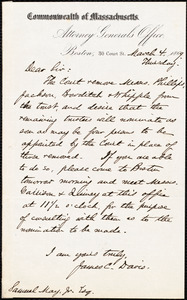 Commonwealth of Massachusetts.
Attorney General's Office,
Boston, 30 Court St. March 4, 1869
Thursday.
Dear Sir:
The Court remove Messrs. Phillips,
Jackson, Bowditch & Whipple from
the trust, and desire that the
remaining trustees will nominate as
soon as may be four persons to be
appointed by the Court in place of
those removed. If you are able
to do so, please come to Boston
tomorrow morning and meet Messrs.
Garrison & Quincy at this office
at 11½ o'clock for the purpose
of consulting with them as to the
nomination to be made.
I am yours truly,
James C. Davis.
Samuel May, Jr. Esq.